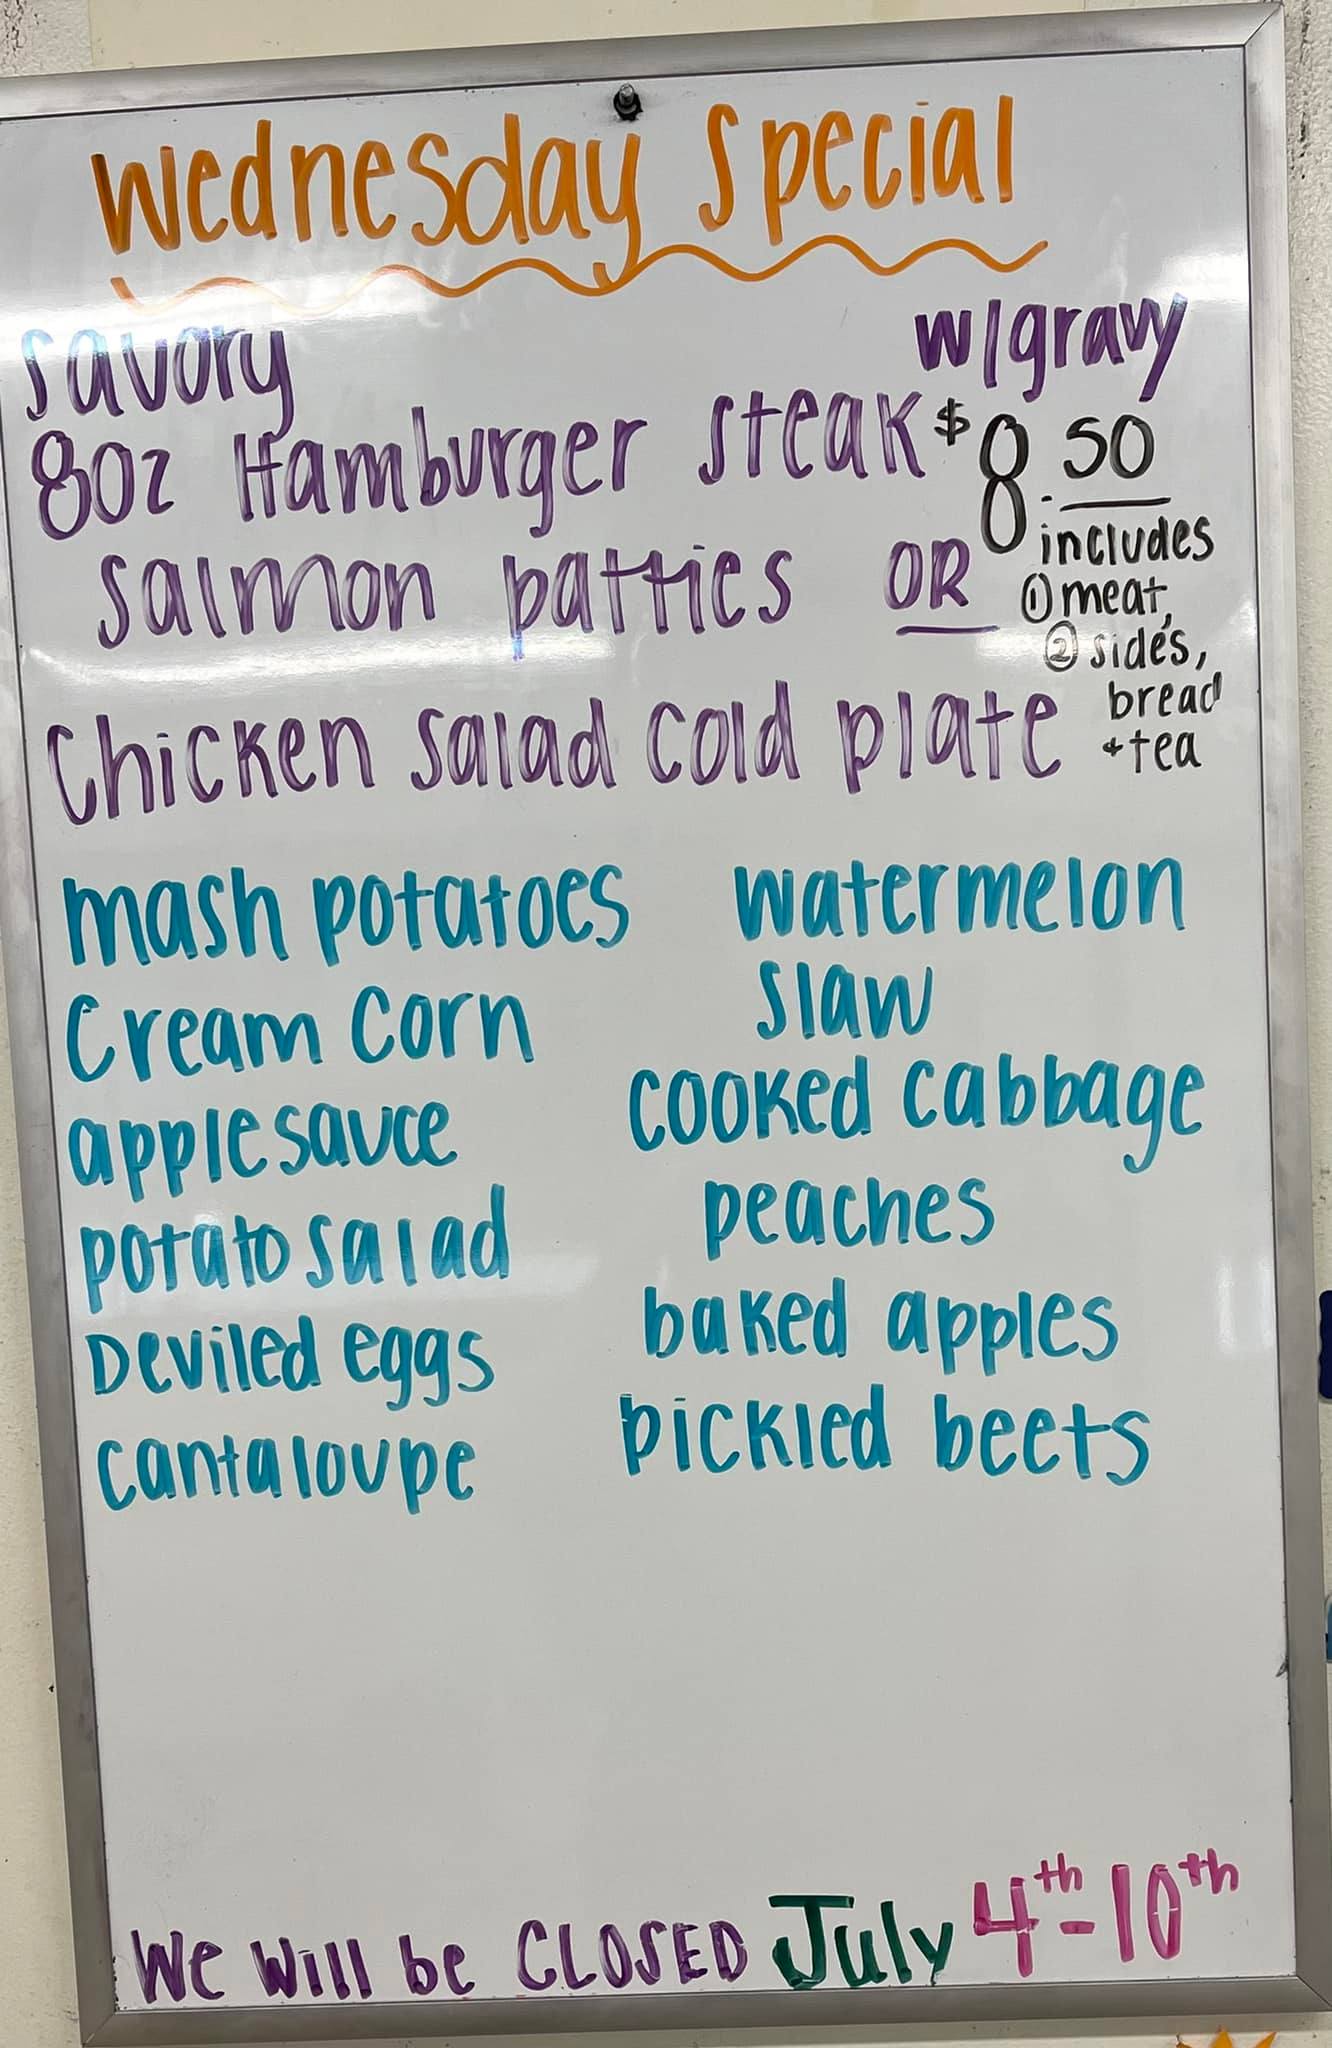 Wednesday Special
Savory w/gravy
8oz Hamburger Steak $8.50
Salmon patties OR
includes
① meat,
② sides,
bread
+ tea
Chicken salad cold plate
mash potatoes
Cream Corn
applesauce
potato salad
Deviled eggs
cantaloupe
watermelon
Slaw
cooked cabbage
peaches
baked apples
pickled beets
We will be CLOSED July 4th-10th